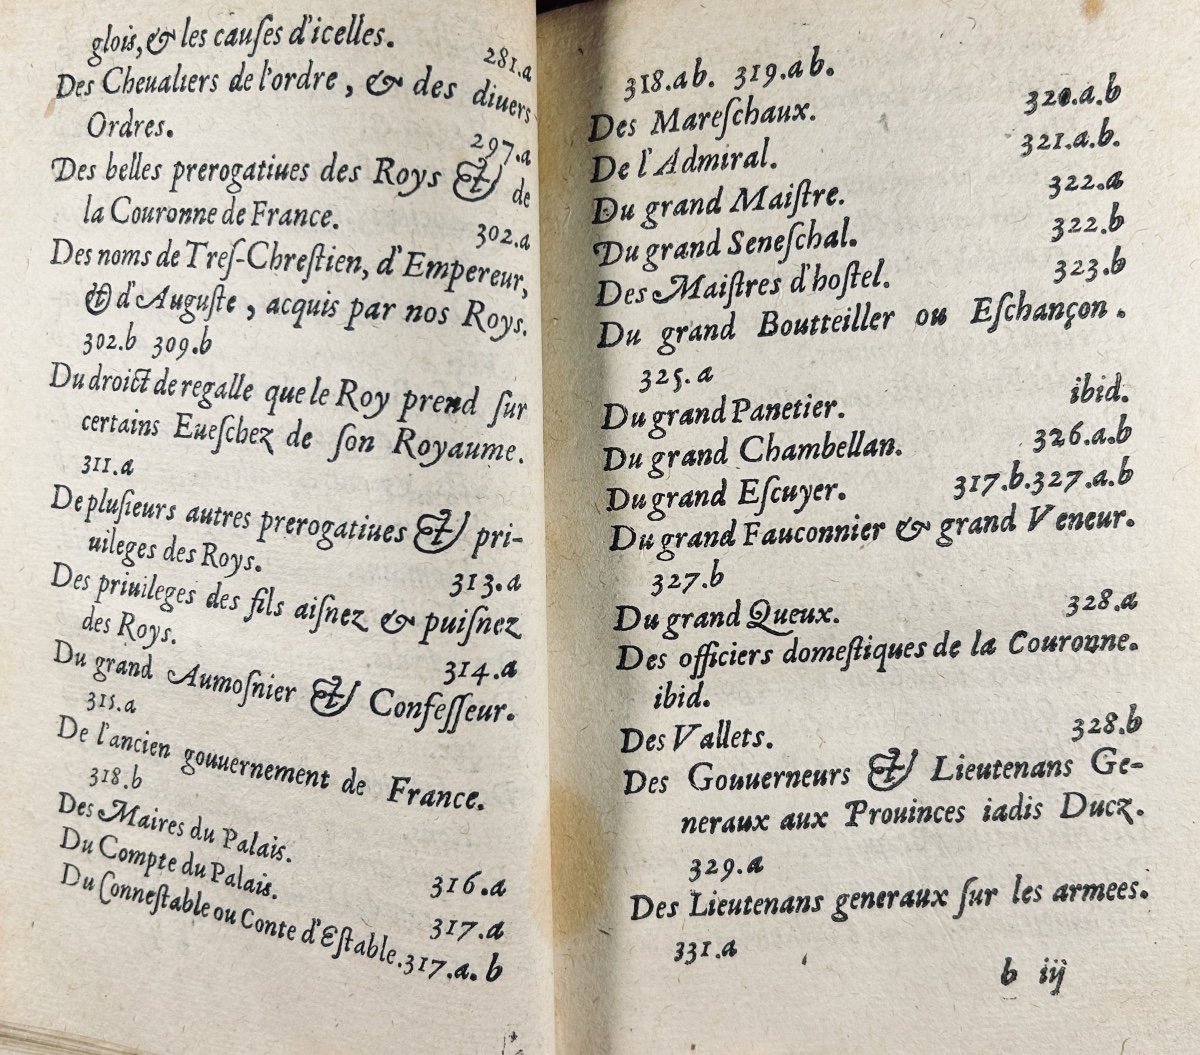 glois, & les cauſes d'icelles.
281.a
Des Cheualiers de l'ordre, & des diuers
Ordres.
297.a
Des belles prerogatiues des Roys & de
la Couronne de France.
302.a
Des noms de Treſ-Chreſtien, d'Empereur,
& d'Auguſte, acquis par nos Roys.
302.b 309.b
Du droict de regalle que le Roy prend ſur
certains Eueſchez de ſon Royaume.
311.a
De pluſieurs autres prerogatiues & pri-
uileges des Roys.
313.a
Des priuileges des fils aiſnez & puiſnez
des Roys.
314.a
Du grand Aumoſnier & Confeſſeur.
315.a
De l'ancien gouuernement de France.
318.b
Des Maires du Palais.
316.a
Du Compte du Palais.
317.a
Du Conneſtable ou Conte d'Eſtable. 317.a. b
318.ab. 319.ab.
Des Mareſchaux. 320.a.b
De l'Admiral. 321.a.b.
Du grand Maiſtre. 322.a
Du grand Seneſchal. 322.b
Des Maiſtres d'hoſtel. 323.b
Du grand Boutteiller ou Eſchançon.
325.a
Du grand Panetier. ibid.
Du grand Chambellan. 326.a.b
Du grand Eſcuyer. 317.b.327.a.b
Du grand Fauconnier & grand Veneur.
327.b
Du grand Queux. 328.a
Des officiers domeſtiques de la Couronne.
ibid.
Des Vallets. 328.b
Des Gouuerneurs & Lieutenans Ge-
neraux aux Prouinces iadis Ducz.
329.a
Des Lieutenans generaux ſur les armees.
331.a
b iij